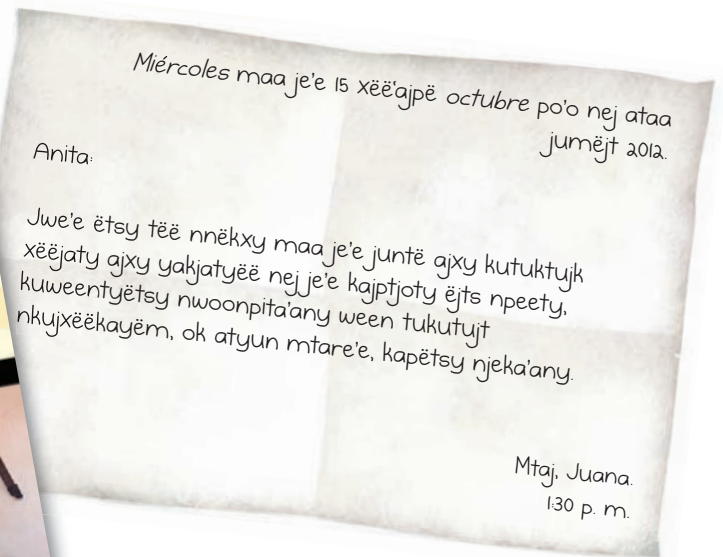 Miércoles maa je'e 15 xëë'ajpë octubre po'o nej ataa
jumëjt 2012.
Anita:
Jwe'e ëtsy tëë nnëkxy maa je'e juntë ajxy kutuktujk
xëëjaty ajxy yakjatyëë nej je'e kajptjoty ëjts npeety,
kuweentyëtsy nwoonpita'any ween tukutujt
nkujxëëkayëm, ok atyun mtare'e, kapëtsy njeka'any.
Mtaj, Juana.
1:30 p. m.